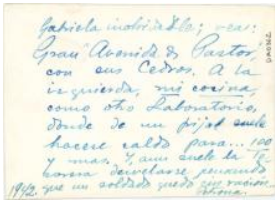 Gabriela inolvidable; veas:
Gran Avenida de Pastor
con sus Cedros. A la
izquierda, mi cocina,
como otro Laboratorio,
donde de un pijal suele
hacerse caldo para... 100
y mas. Y aun suele la Te-
horera desvelarse pensando
1942. que un soldado quedó sin ración